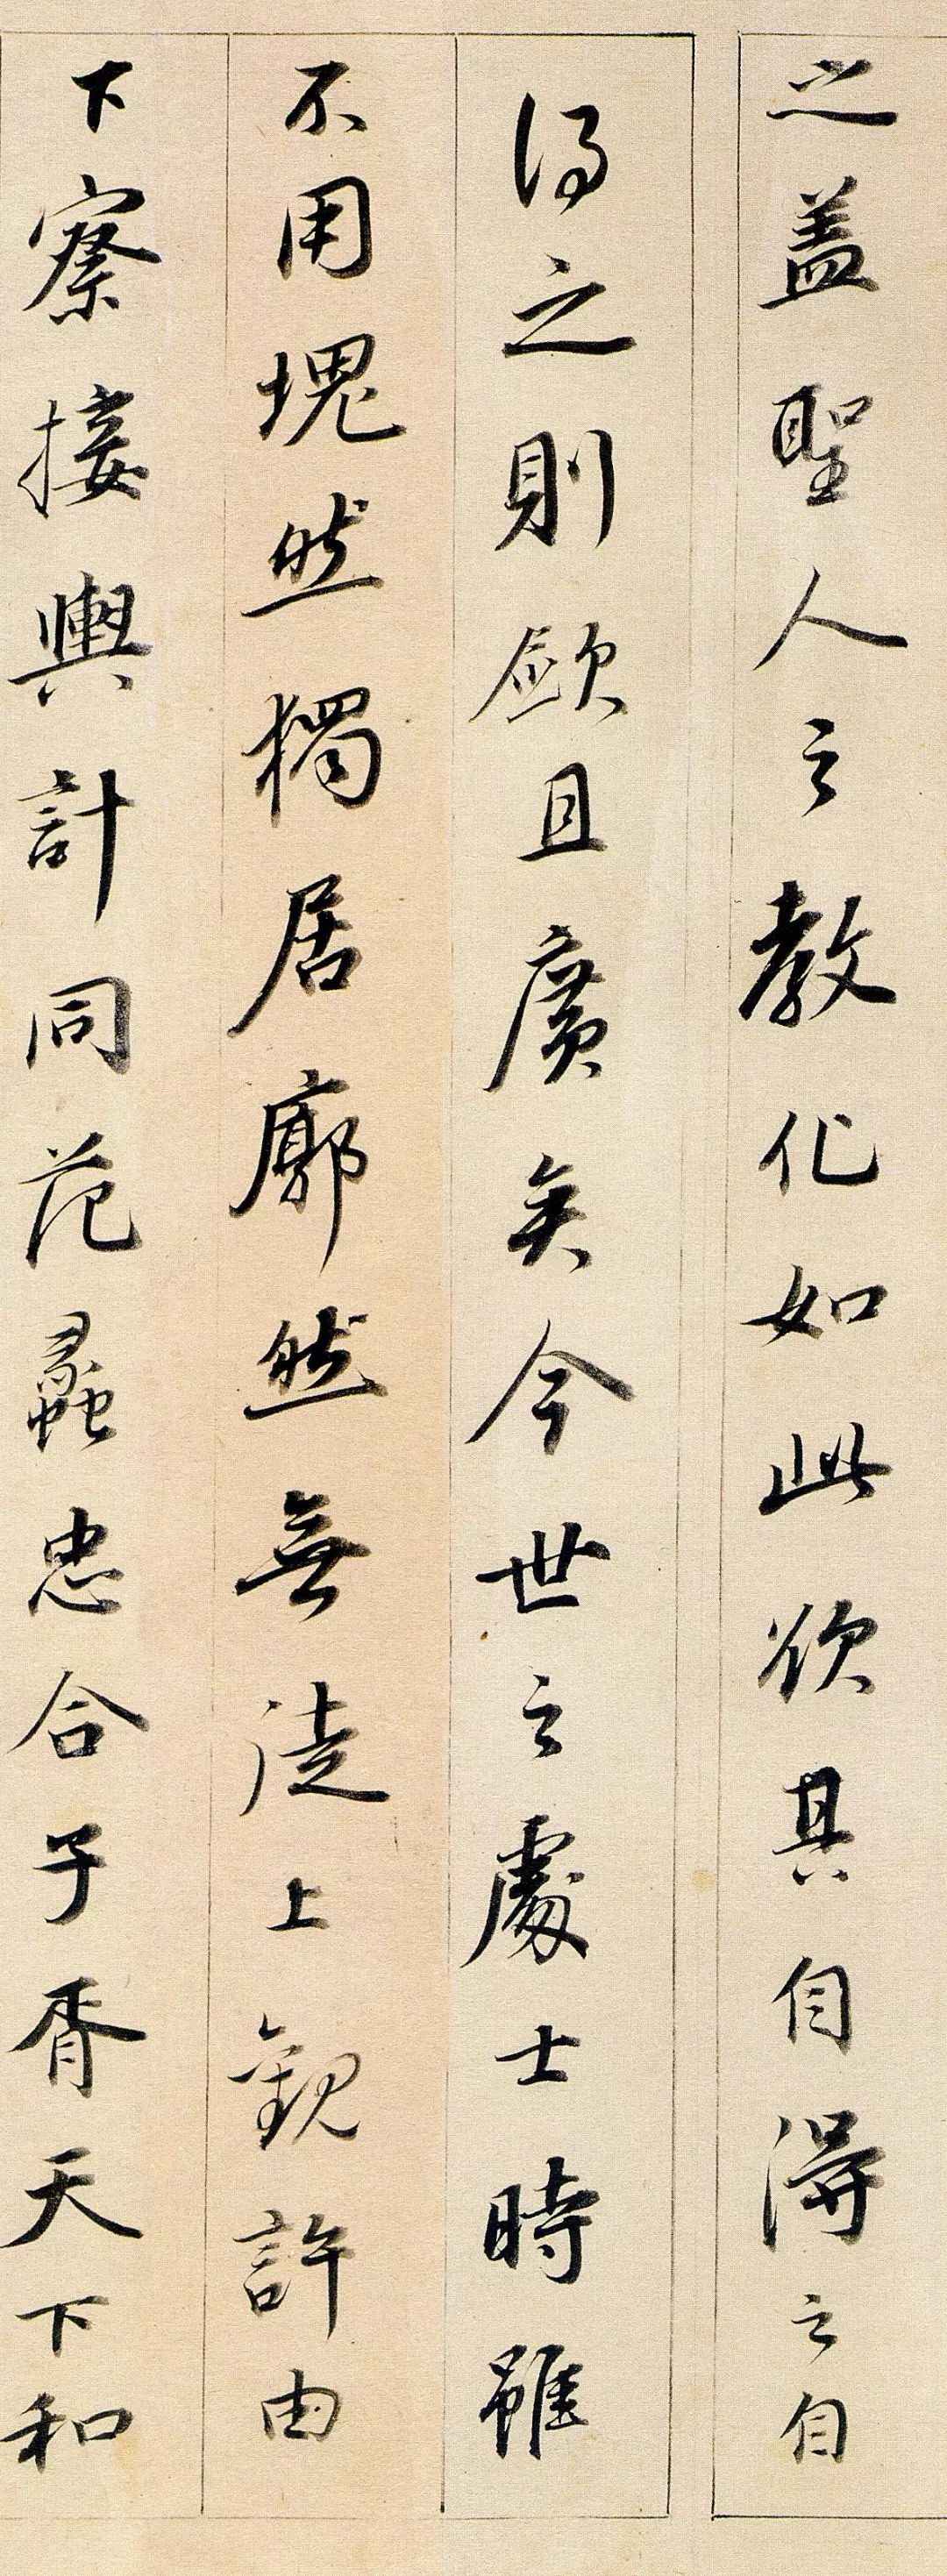 之盖聖人之教化如此欲其自得之自
得之則歛且廣矣今世之處士時雖
不用塊然獨居廓然無徒上觀許由
下察接輿計同范蠡忠合子胥天下和